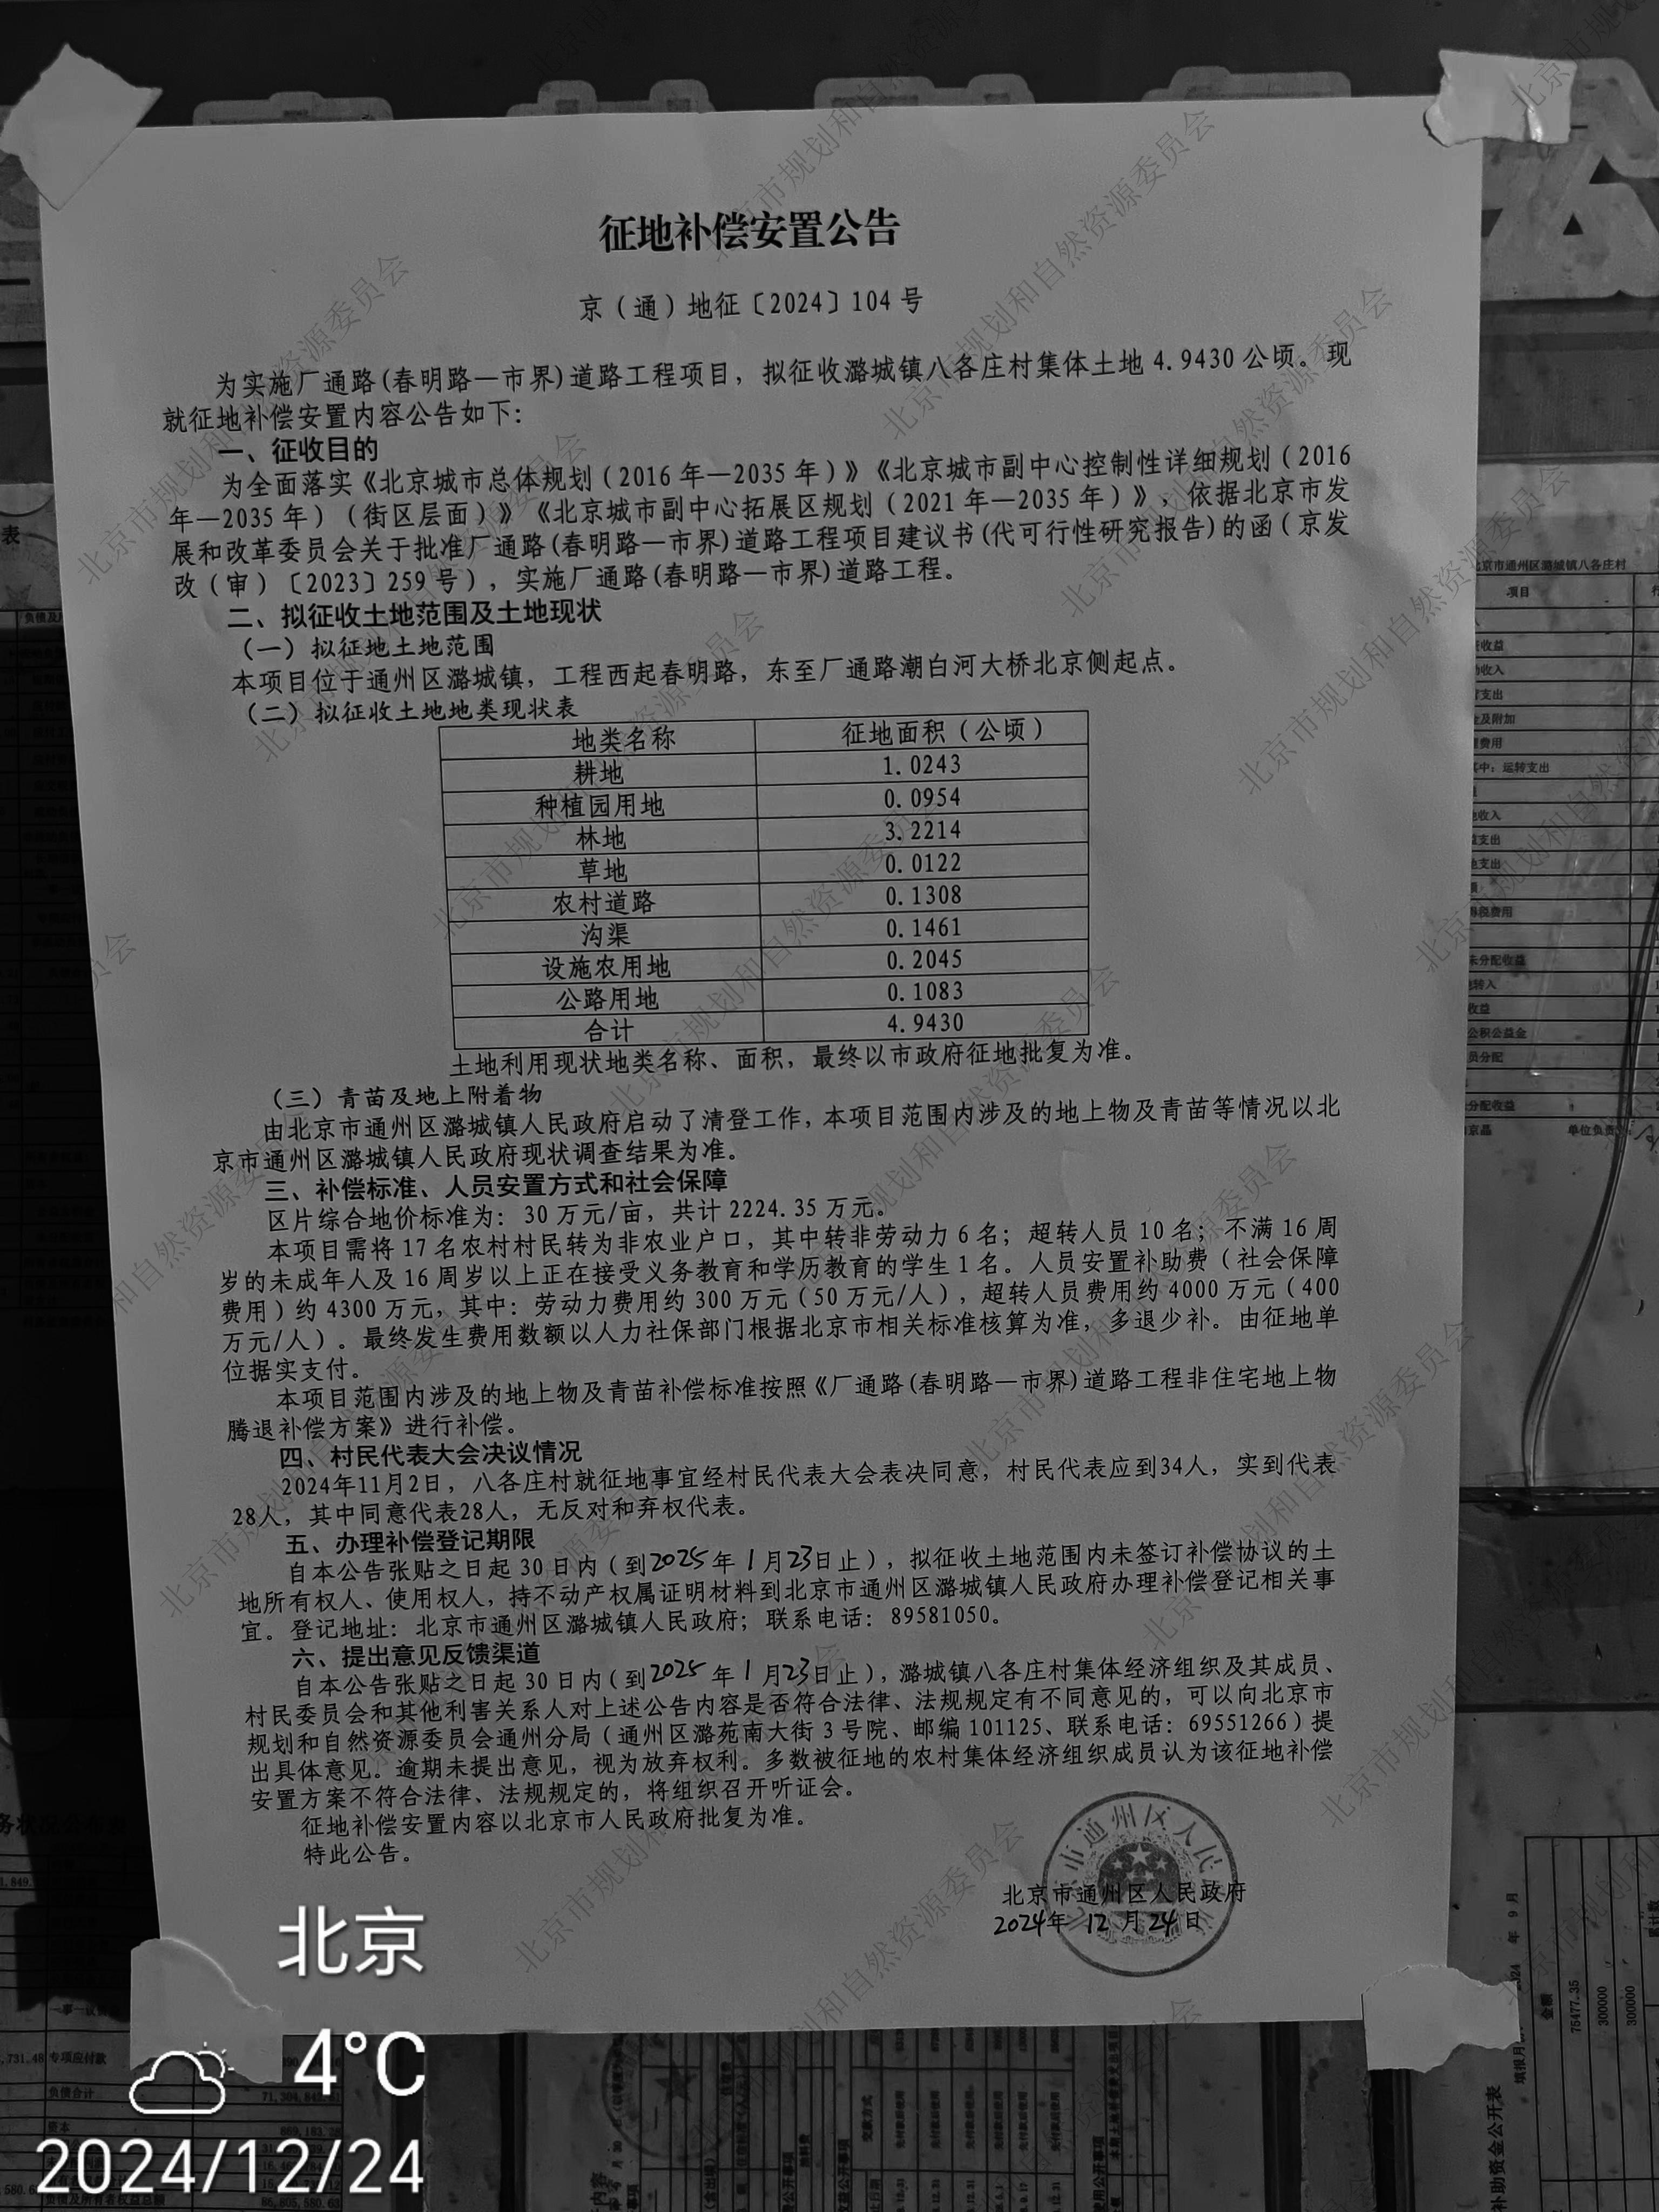 征地补偿安置公告
京（通）地征〔2024〕104 号
为实施厂通路(春明路—市界)道路工程项目，拟征收潞城镇八各庄村集体土地 4.9430 公顷。现
就征地补偿安置内容公告如下：
一、征收目的
为全面落实《北京城市总体规划（2016 年—2035 年）》《北京城市副中心控制性详细规划（2016
年—2035 年）（街区层面）》《北京城市副中心拓展区规划（2021 年—2035 年）》，依据北京市发
展和改革委员会关于批准厂通路(春明路—市界)道路工程项目建议书(代可行性研究报告)的函（京发
改（审）〔2023〕259 号），实施厂通路(春明路—市界)道路工程。
二、拟征收土地范围及土地现状
（一）拟征地土地范围
本项目位于通州区潞城镇，工程西起春明路，东至厂通路潮白河大桥北京侧起点。
（二）拟征收土地地类现状表
地类名称 征地面积（公顷）
耕地 1.0243
种植园用地 0.0954
林地 3.2214
草地 0.0122
农村道路 0.1308
沟渠 0.1461
设施农用地 0.2045
公路用地 0.1083
合计 4.9430
土地利用现状地类名称、面积，最终以市政府征地批复为准。
（三）青苗及地上附着物
由北京市通州区潞城镇人民政府启动了清登工作，本项目范围内涉及的地上物及青苗等情况以北
京市通州区潞城镇人民政府现状调查结果为准。
三、补偿标准、人员安置方式和社会保障
区片综合地价标准为：30 万元/亩，共计 2224.35 万元。
本项目需将 17 名农村村民转为非农业户口，其中转非劳动力 6 名；超转人员 10 名；不满 16 周
岁的未成年人及 16 周岁以上正在接受义务教育和学历教育的学生 1 名。人员安置补助费（社会保障
费用）约 4300 万元，其中：劳动力费用约 300 万元（50 万元/人），超转人员费用约 4000 万元（400
万元/人）。最终发生费用数额以人力社保部门根据北京市相关标准核算为准，多退少补。由征地单
位据实支付。
本项目范围内涉及的地上物及青苗补偿标准按照《厂通路(春明路—市界)道路工程非住宅地上物
腾退补偿方案》进行补偿。
四、村民代表大会决议情况
2024年11月2日，八各庄村就征地事宜经村民代表大会表决同意，村民代表应到34人，实到代表
28人，其中同意代表28人，无反对和弃权代表。
五、办理补偿登记期限
自本公告张贴之日起 30 日内（到2025 年 1 月 23日止），拟征收土地范围内未签订补偿协议的土
地所有权人、使用权人，持不动产权属证明材料到北京市通州区潞城镇人民政府办理补偿登记相关事
宜。登记地址：北京市通州区潞城镇人民政府；联系电话：89581050。
六、提出意见反馈渠道
自本公告张贴之日起 30 日内（到2025 年 1 月 23日止），潞城镇八各庄村集体经济组织及其成员、
村民委员会和其他利害关系人对上述公告内容是否符合法律、法规规定有不同意见的，可以向北京市
规划和自然资源委员会通州分局（通州区潞苑南大街 3 号院、邮编 101125、联系电话：69551266）提
出具体意见。逾期未提出意见，视为放弃权利。多数被征地的农村集体经济组织成员认为该征地补偿
安置方案不符合法律、法规规定的，将组织召开听证会。
征地补偿安置内容以北京市人民政府批复为准。
特此公告。
北京市通州区人民政府
2024年 12 月 24 日
北京
4°C
2024/12/24
北京市规划和自然资源委员会
北京市通州区潞城镇八各庄村
项目
其中：运转支出
未分配收益
公积公益金
专项应付款
负债合计
补助资金公开表
金额
75477.35
300000
300000